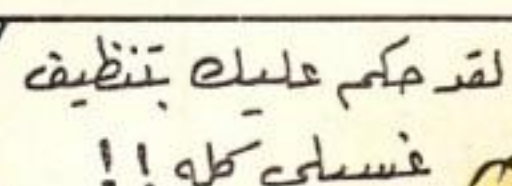 لقد حكم عليك بتنظيف
غسيلى كله !!